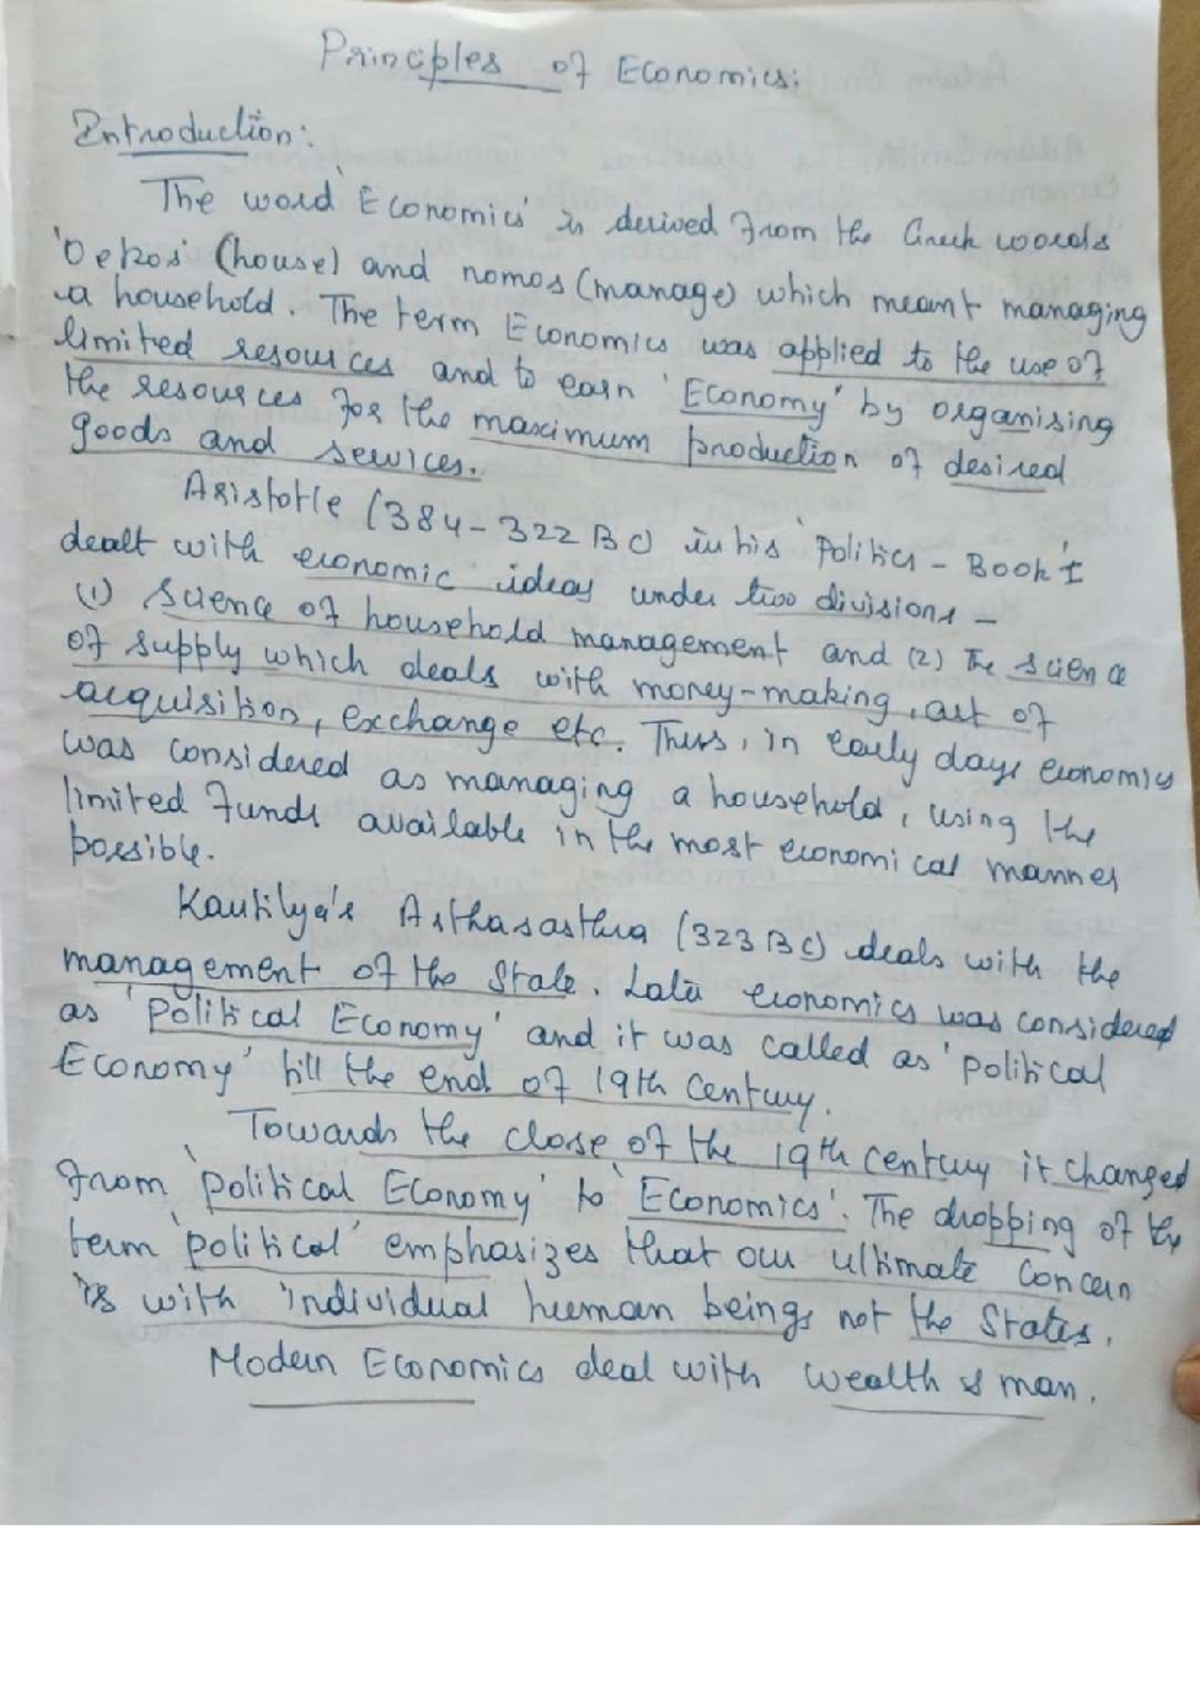 Principles of Economics:
Introduction:
The word 'Economics' is derived from the Greek words
'Oekos' (house) and nomos (manage) which meant managing
a household. The term Economics was applied to the use of
limited resources and to earn 'Economy' by organising
the resources for the maximum production of desired
goods and services.
Aristotle (384-322 BC) in his 'Politics - Book'I
dealt with economic ideas under two divisions -
(1) Science of household management and (2) The science
of supply which deals with money-making, art of
acquisition, exchange etc. Thus, in early days economics
was considered as managing a household, using the
limited funds available in the most economical manner
possible.
Kautilya's Arthasasthra (323 BC) deals with the
management of the State. Later economics was considered
as 'Political Economy' and it was called as 'political
Economy' till the end of 19th Century.
Towards the close of the 19th century it changed
from 'political Economy' to 'Economics'. The dropping of the
term 'political' emphasizes that our ultimate concern
is with individual human beings not the States.
Modern Economics deal with wealth & man.